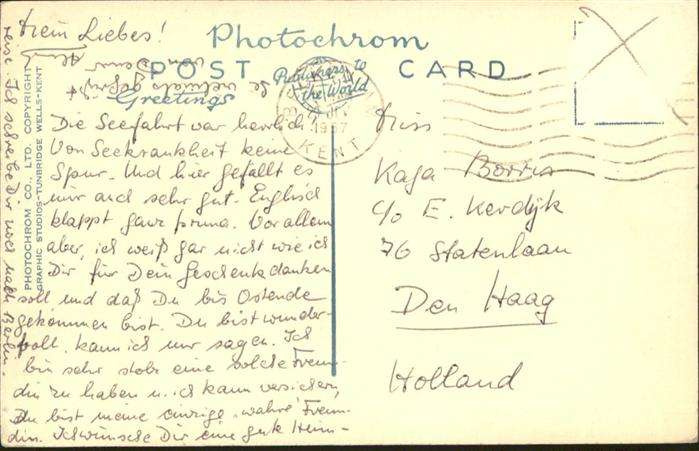 Mein Liebes!
Photochrom
POST CARD
Publishers to
the World
Greetings
1937
KENT
PHOTOCHROM CO. LTD. COPYRIGHT
GRAPHIC STUDIOS-TUNBRIDGE WELLS-KENT
Die Seefahrt war herrlich.
Von Seekrankheit keine
Spur. Und hier gefällt es
mir auch sehr gut. Englisch
klappt ganz prima. Vor allem
aber, ich weiß gar nicht wie ich
Dir für Dein Geschenk danken
soll und daß Du bis Ostende
gekommen bist. Du bist wunder-
voll, kann ich nur sagen. Ich
bin sehr stolz eine solche Freun-
din zu haben u. ich kann versichern,
Du bist meine einzige "wahre" Freun-
din. Ich wünsche Dir eine gute Heim-
reise. Ich schreibe Dir noch nach Berlin.
Miss
Kaga Borris
c/o E. Kerdijk
76 Statenlaan
Den Haag
Holland